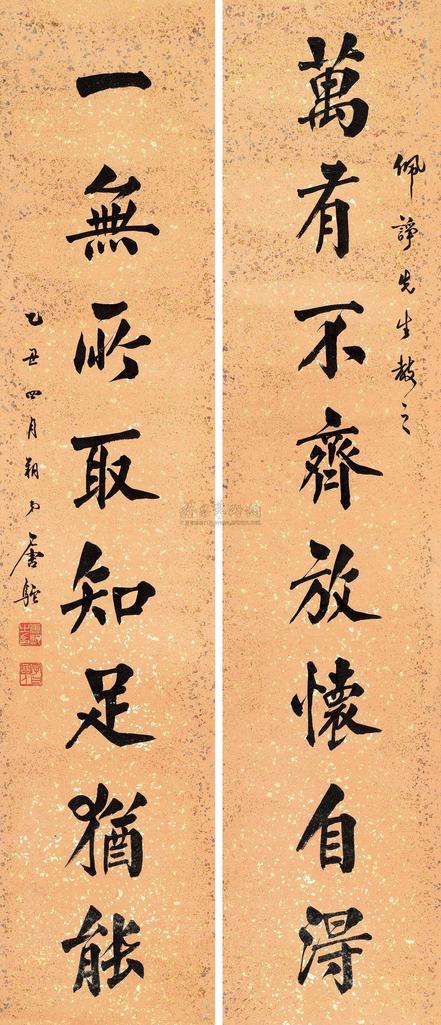 佩諍先生教之
萬有不齊放懷自得
一無所取知足猶能
乙丑四月朔日唐駝